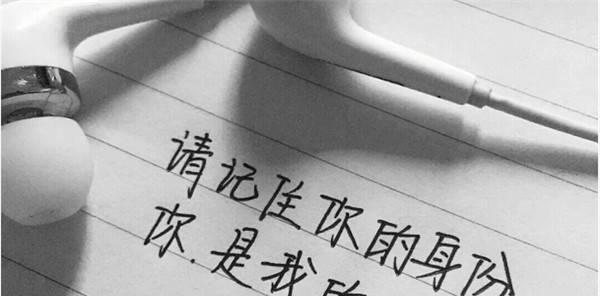 请记住你的身份
你.是我的